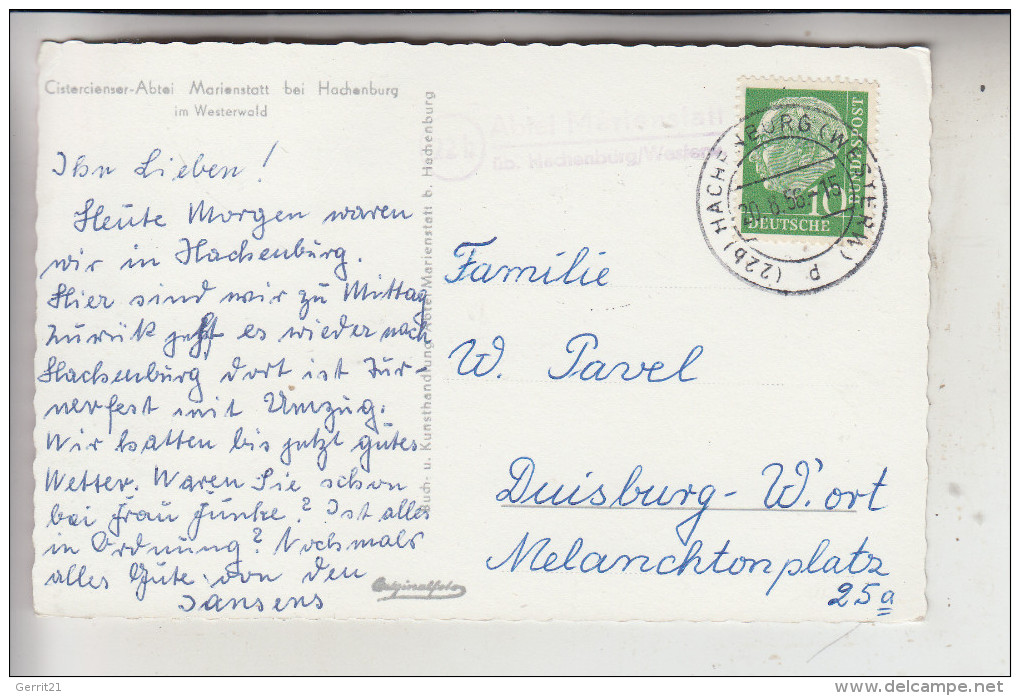 Cistercienser-Abtei Marienstatt bei Hachenburg
im Westerwald
Ihr Lieben!
Heute Morgen waren
wir in Hachenburg.
Hier sind wir zu Mittag
zurück geht es wieder nach
Hachenburg dort ist Tur-
nerfest mit Umzug.
Wir hatten bis jetzt gutes
Wetter. Waren Sie schon
bei Frau Funke? Ist alles
in Ordnung? Nochmals
alles Gute von den
Jansens
Buch- u. Kunsthandlung Abtei Marienstatt b. Hachenburg
Originalfoto
Abtei Marienstatt
üb. Hachenburg/Westerw
22b
(22b) HACHENBURG (WESTERW) p
20.8.56-15
DEUTSCHE
BUNDESPOST
10
Familie
W. Pavel
Duisburg-W.ort
Melanchtonplatz
25a
Gerrit21
www.delcampe.net